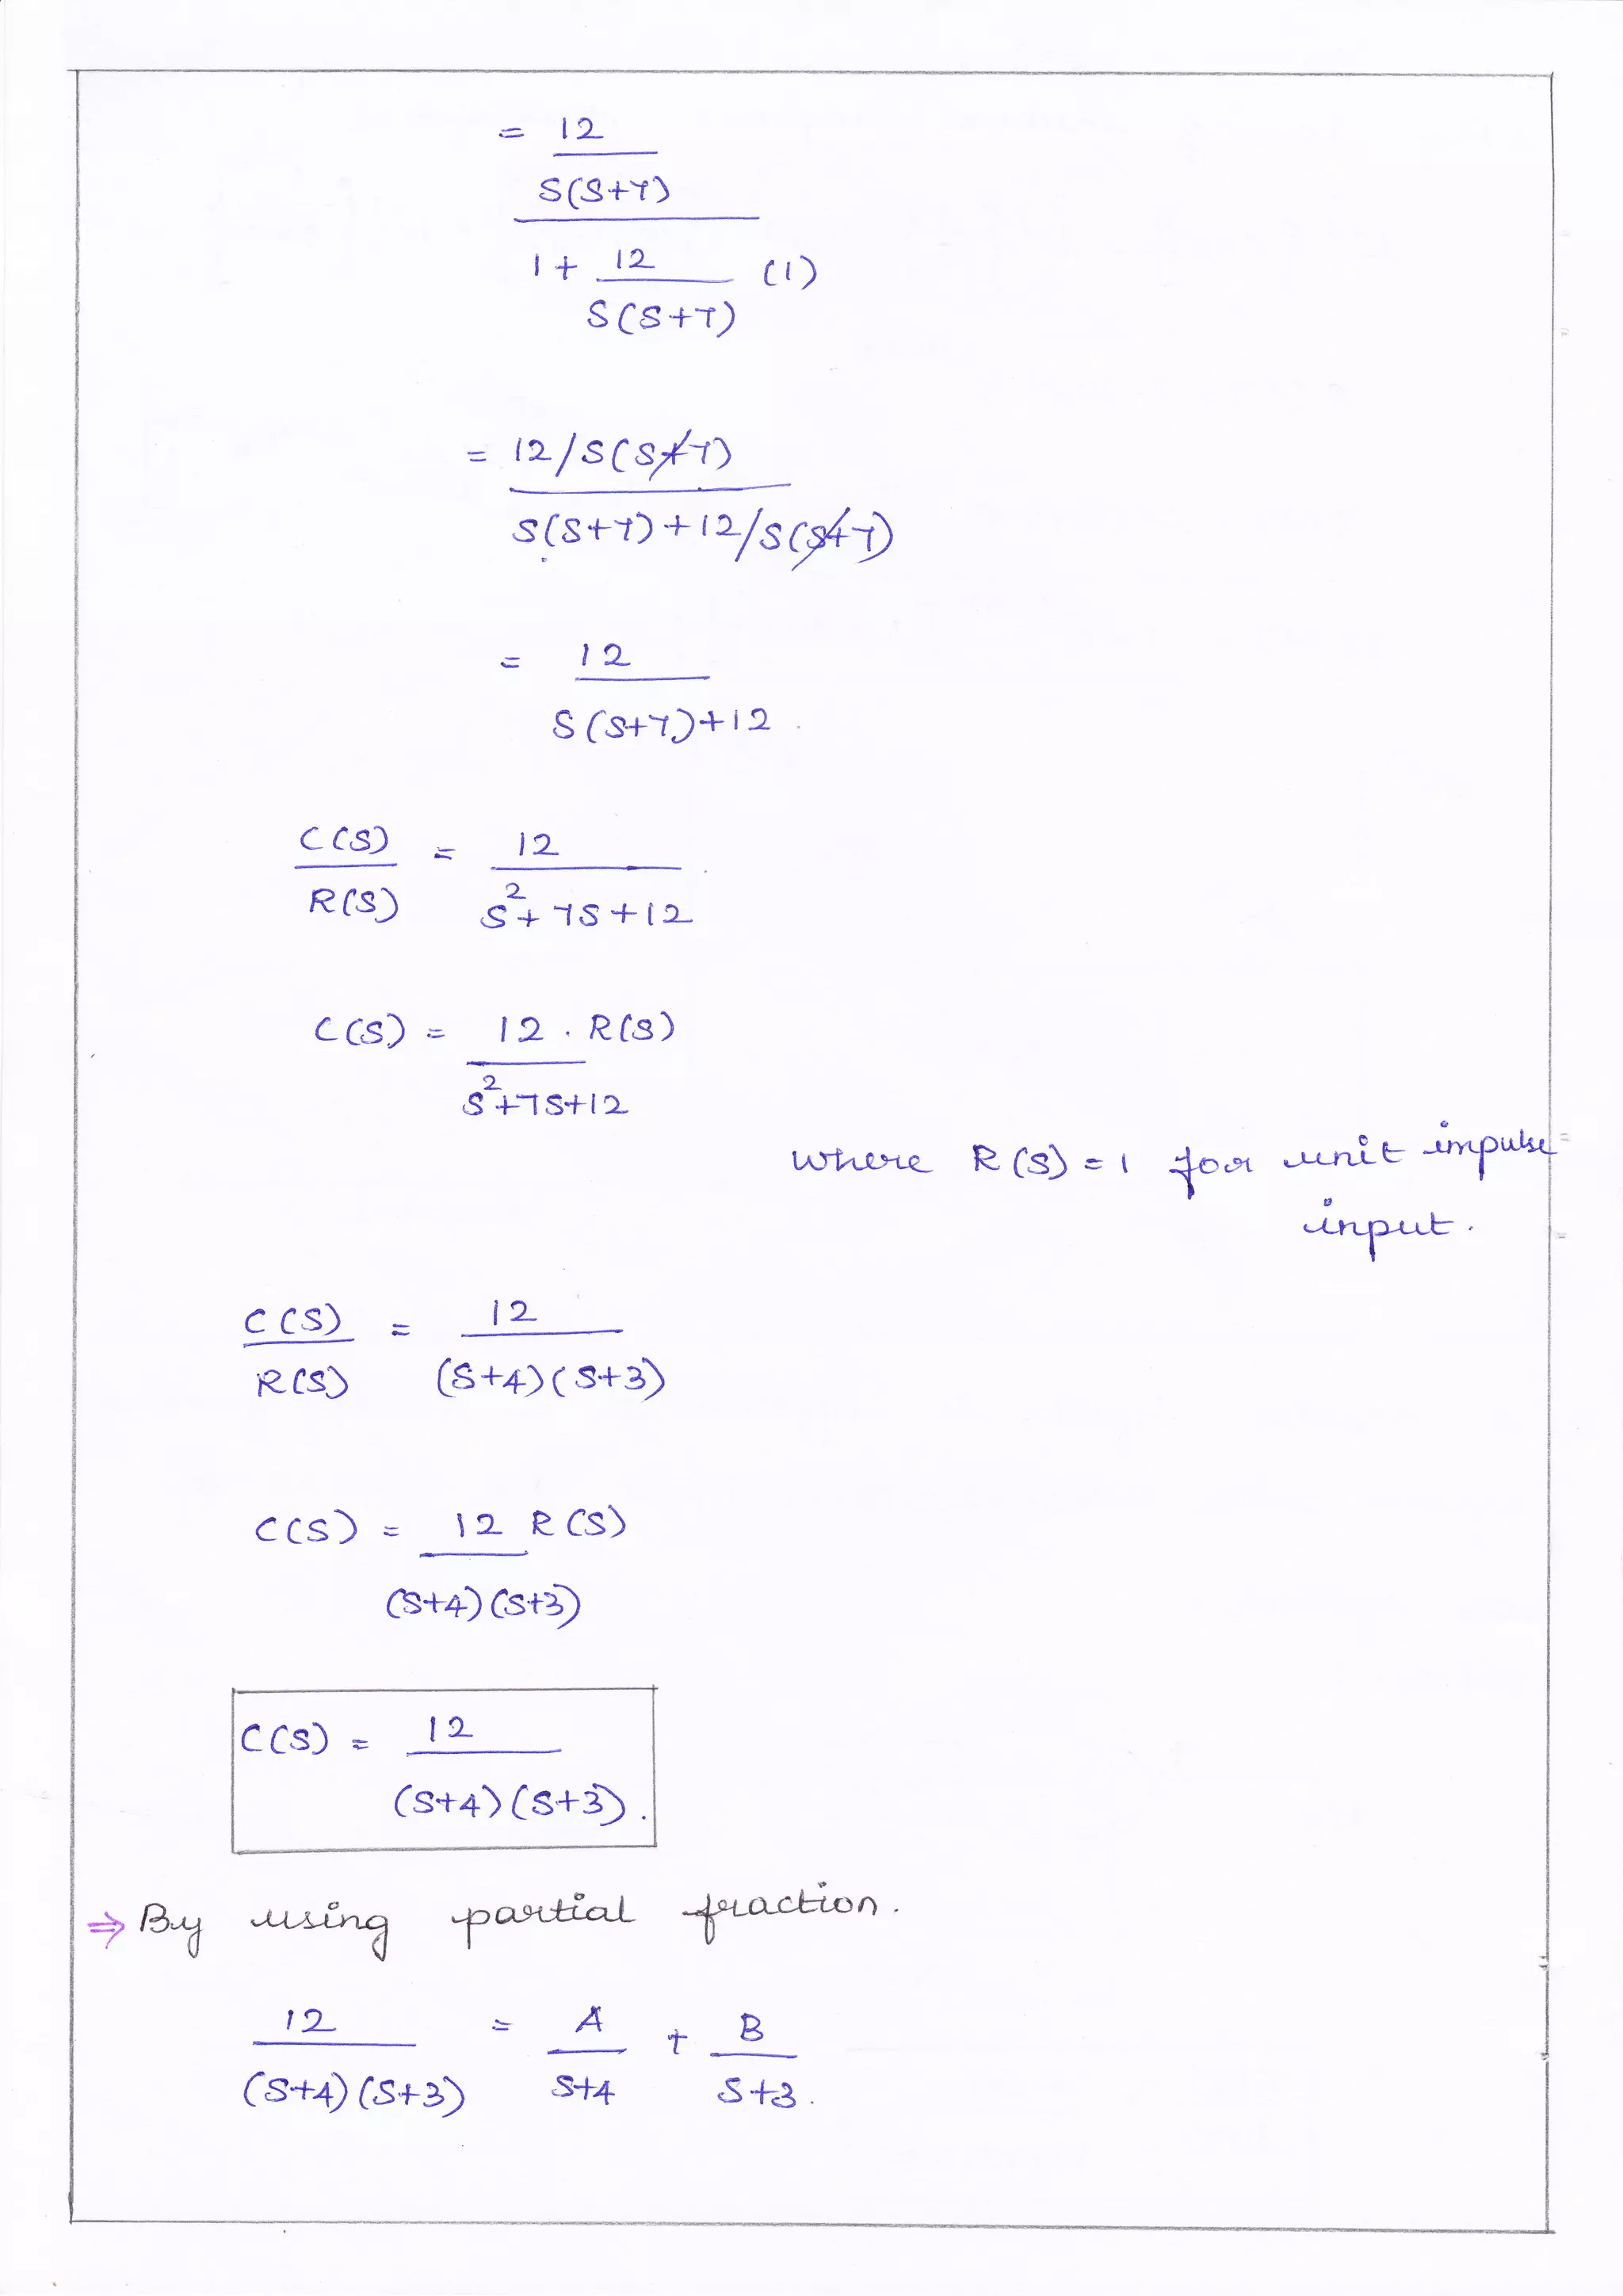 = 12
S(S+7)
1 + 12 (1)
S(S+7)
= 12/S(S+7)
S(S+7)+12/S(S+7)
= 12
S(S+7)+12.
C(S) = 12
R(S) S²+7S+12
C(S) = 12 . R(S)
S²+7S+12
where R(S)=1 for unit impulse
input.
C(S) = 12
R(S) (S+4)(S+3)
C(S) = 12 R(S)
(S+4)(S+3)
C(S) = 12
(S+4)(S+3).
⇒ By using partial fraction.
12 = A + B
(S+4)(S+3) S+4 S+3.